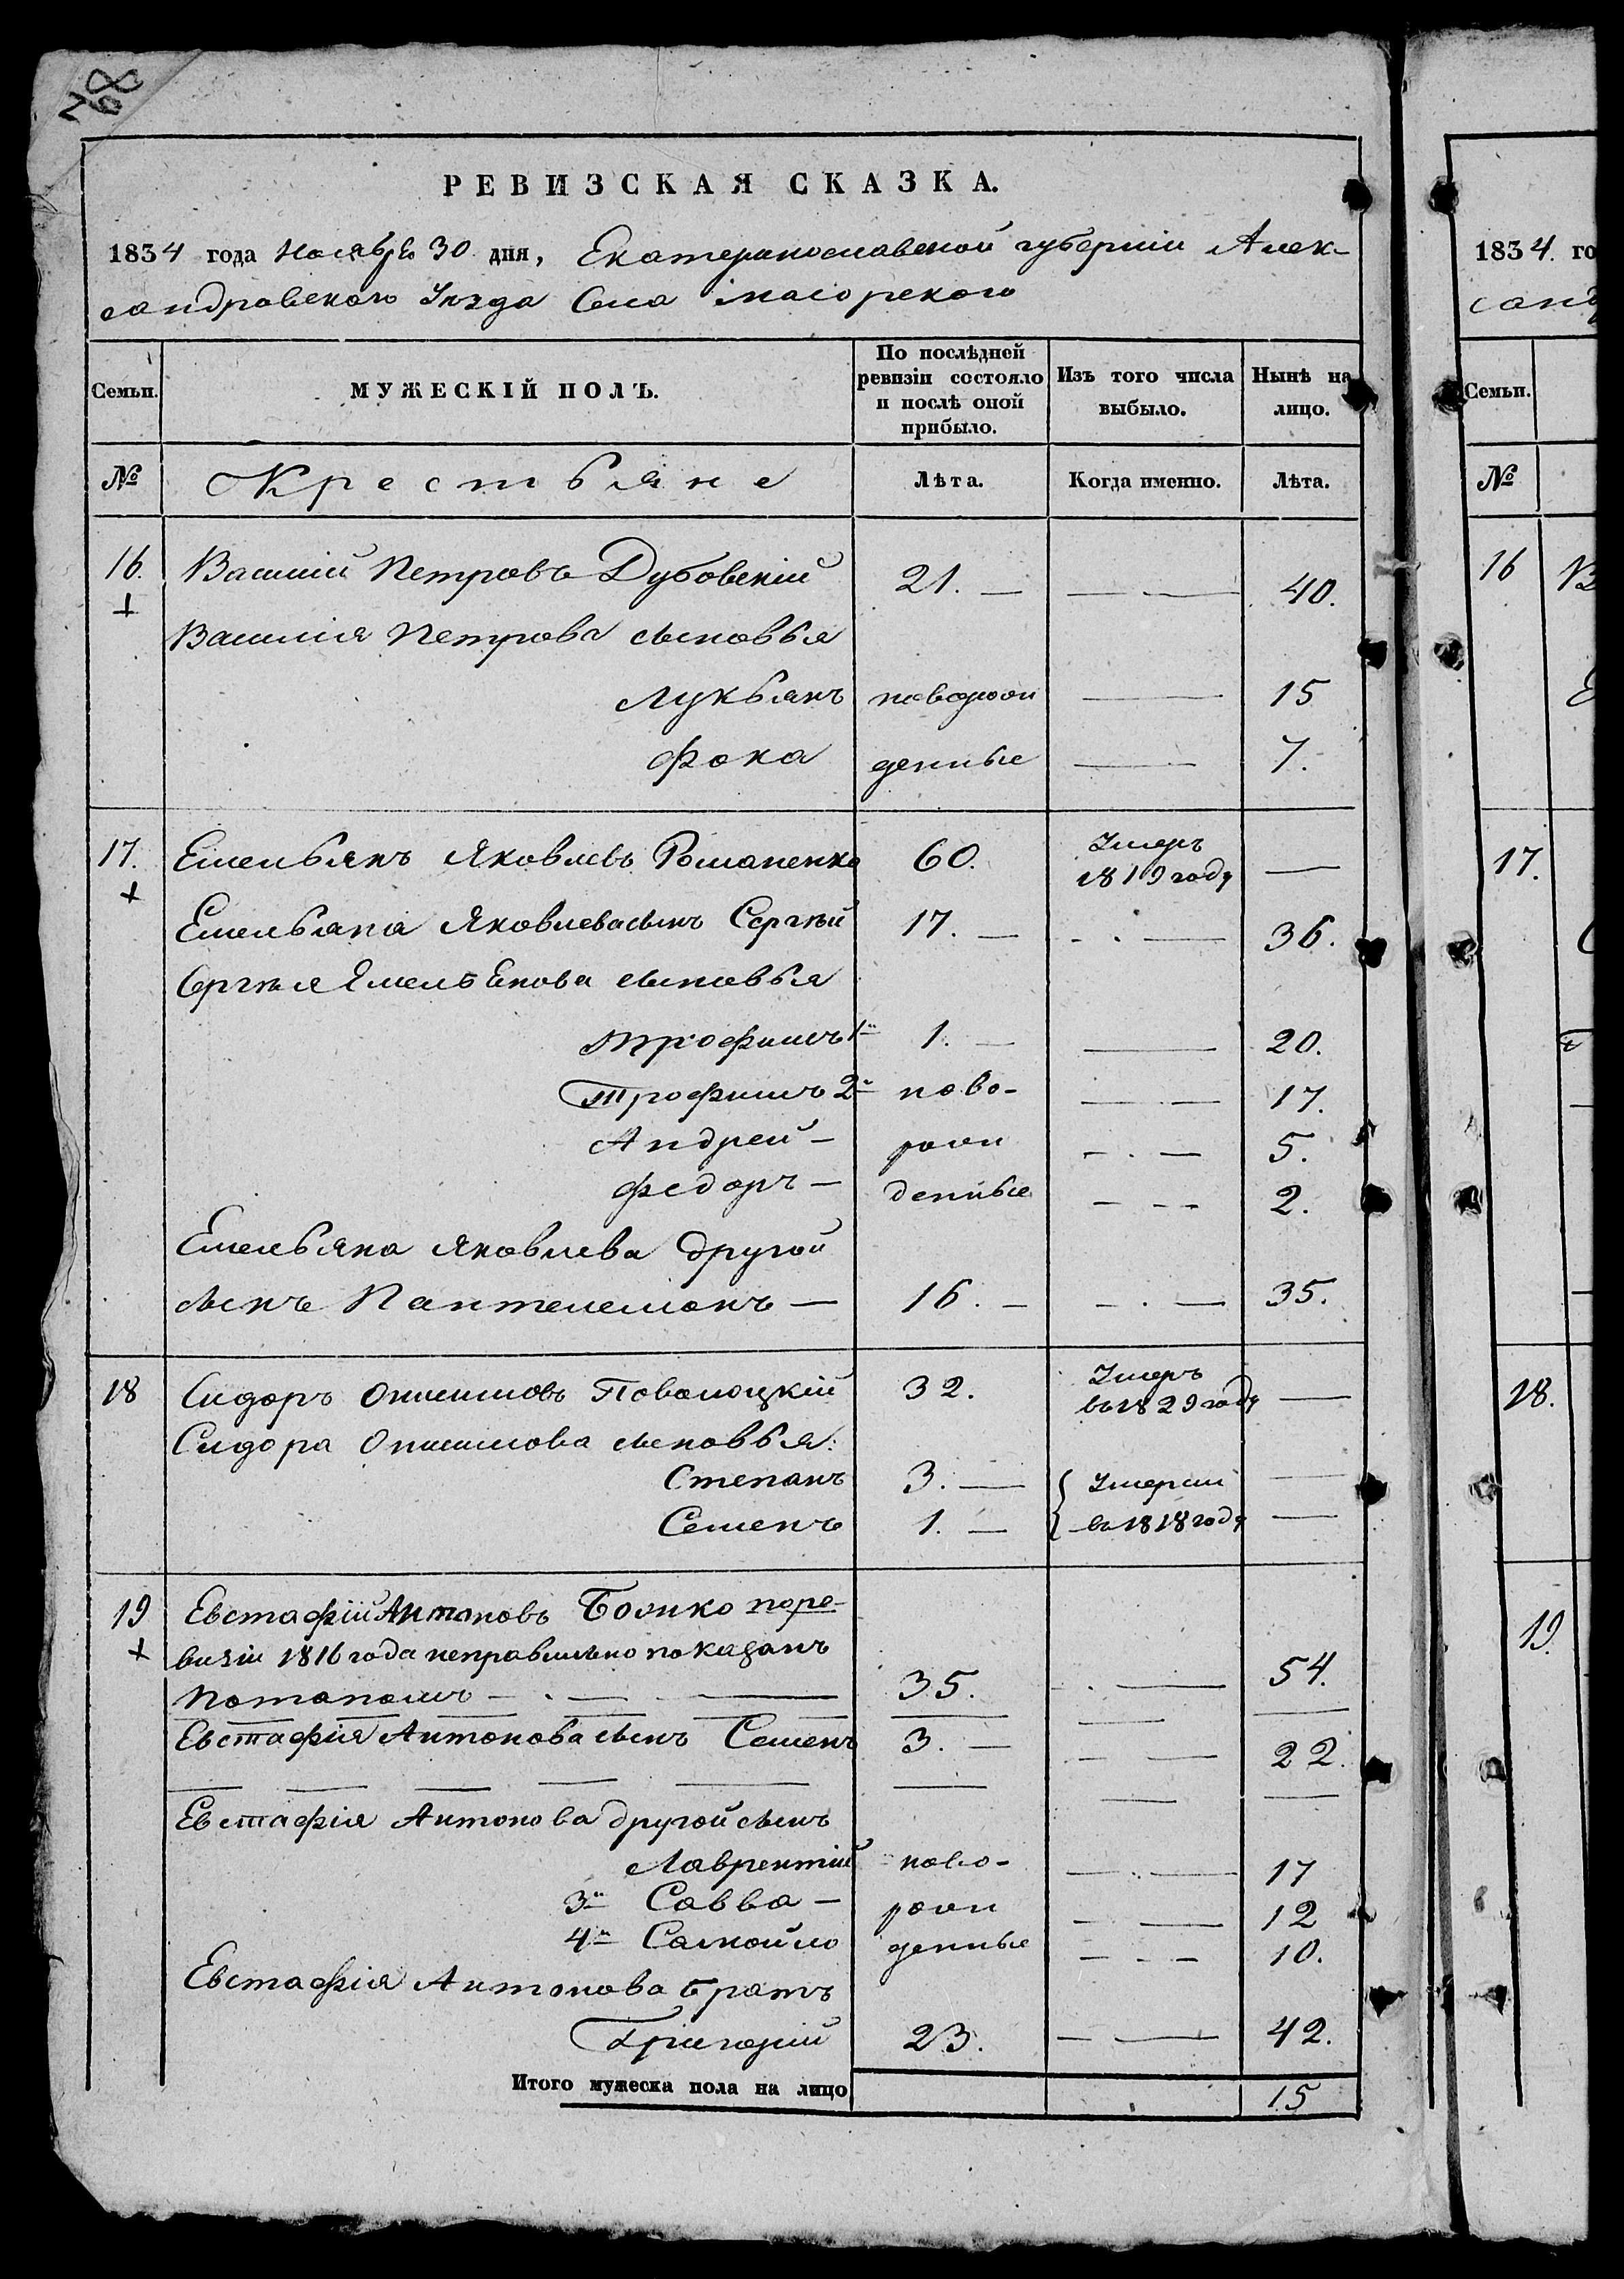 768
РЕВИЗСКАЯ СКАЗКА.
1834 года Ноября 30 дня, Екатеринославской губерніи Алек-
сандровского Уѣзда Села Маіорского
Семьи. МУЖЕСКІЙ ПОЛЪ. По послѣдней ревизіи состояло и послѣ оной прибыло. Изъ того числа выбыло. Нынѣ на лицо.
№ Крестьяне Лѣта. Когда именно. Лѣта.
16. Василій Петровъ Дубовскій 21. — — — 40.
+
Василія Петрова сыновья
Лукьянъ новорож — 15
Фока денные — 7.
17. Емельянъ Яковлевъ Романенко 60. Умеръ 1819 году —
+
Емельяна Яковлева сынъ Сергѣй 17. — - . — 36.
Сергѣя Емельянова сыновья
Трофимъ 1й 1. — — 20.
Трофимъ 2й ново- — — 17.
Андрей — рож - . — 5.
Федоръ — денные — - - 2.
Емельяна Яковлева другой
сынъ Пантелемонъ — 16. — - . — 35.
18 Сидоръ Онисимовъ Поволоцкій 32. Умеръ въ 1829 году —
Сидора Онисимова сыновья:
Степанъ 3. — { Умерли —
Семенъ 1. — въ 1818 году —
19 Евстафій Антоновъ Бойко поре-
+ визіи 1816 года неправильно показанъ
Потапомъ — . — — 35. - . — 54.
Евстафія Антонова сынъ Семенъ 3. — — — 22.
Евстафія Антонова другой сынъ
Лаврентій ново- — . — 17
3й Савва — рож - — 12
4й Самойло денные — - - 10.
Евстафія Антонова братъ
Григорій 23. — — 42.
Итого мужеска пола на лицо 15
1834. го
санд
Семьи.
№
16
17.
18.
19.